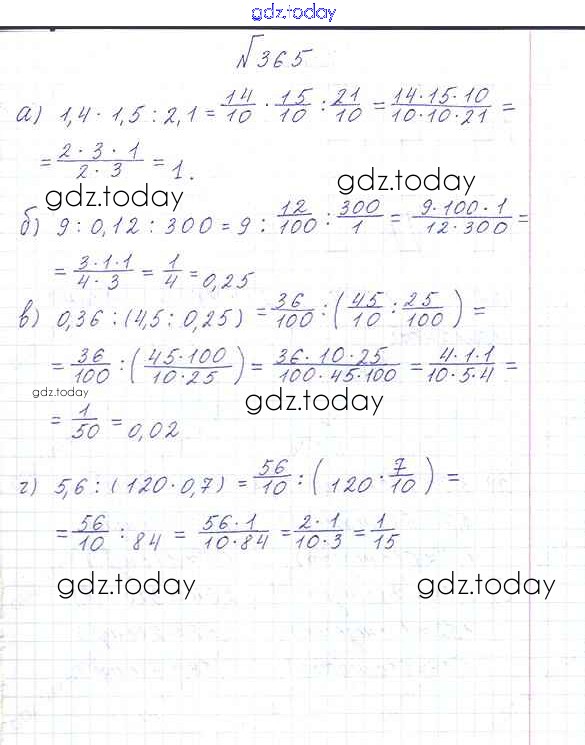 gdz.today
№365
а) 1,4 · 1,5 : 2,1 = 14/10 · 15/10 : 21/10 = 14·15·10/10·10·21 =
= 2·3·1/2·3 = 1.
gdz.today gdz.today
б) 9 : 0,12 : 300 = 9 : 12/100 : 300/1 = 9·100·1/12·300 =
= 3·1·1/4·3 = 1/4 = 0,25
в) 0,36 : (4,5 : 0,25) = 36/100 : (45/10 : 25/100) =
= 36/100 : (45·100/10·25) = 36·10·25/100·45·100 = 4·1·1/10·5·4 =
gdz.today gdz.today
= 1/50 = 0,02
г) 5,6 : (120·0,7) = 56/10 : (120 · 7/10) =
= 56/10 : 84 = 56·1/10·84 = 2·1/10·3 = 1/15
gdz.today gdz.today